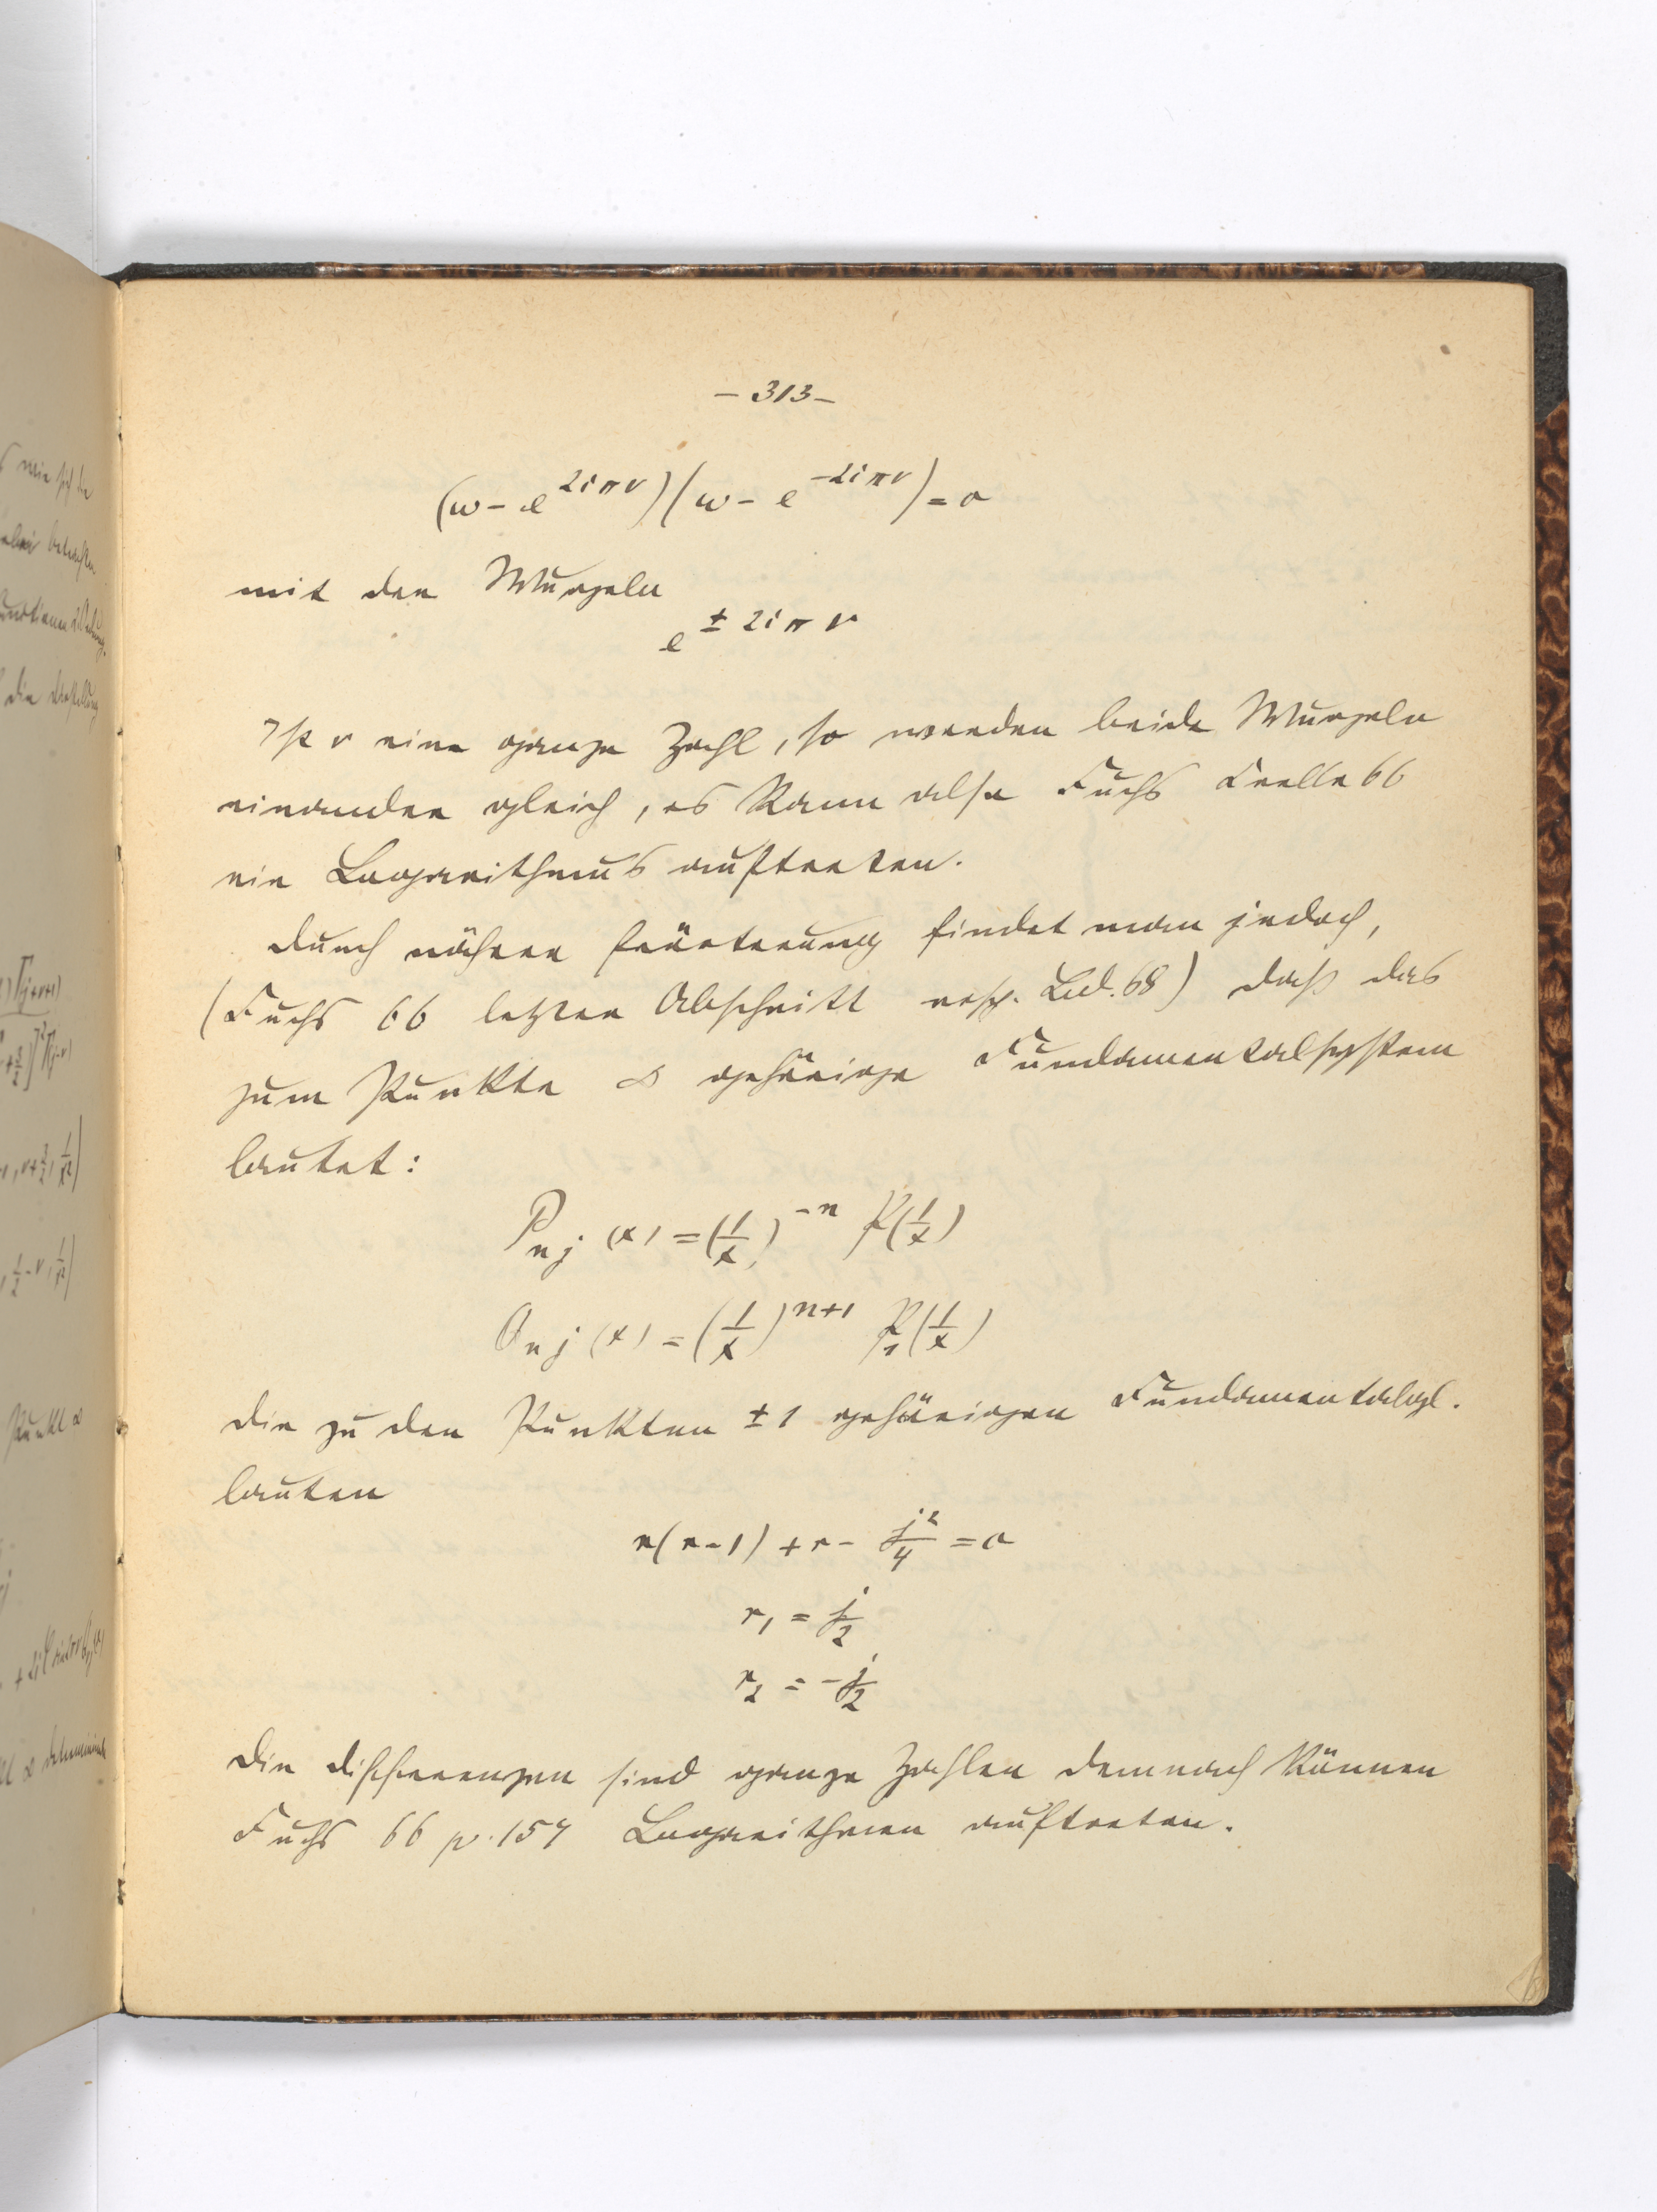 – 313 –
(ω – e^{2iπν})(ω – e^{–2iπν}) = 0
mit den Wurzeln
e^{± 2iπν}
Ist ν eine ganze Zahl, so werden beide Wurzeln
einander gleich, es kann also Fuchs Crelle 66
ein Logarithmus auftreten.
Durch nähere Erörterung findet man jedoch,
(Fuchs 66 letzter Abschnitt resp. Bd. 68) daß das
zum Punkte ∞ gehörige Fundamentalsystem
lautet:
P_{nj}(x) = (1/x)^{-n} P(1/x)
Q_{nj}(x) = (1/x)^{n+1} P_1(1/x)
Die zu den Punkten ± 1 gehörigen Fundamentalgl.
lauten
r(r-1) + r - j²/4 = 0
r_1 = j/2
r_2 = - j/2
Die Differenzen sind ganze Zahlen demnach können
Fuchs 66 p. 157 Logarithmen auftreten.